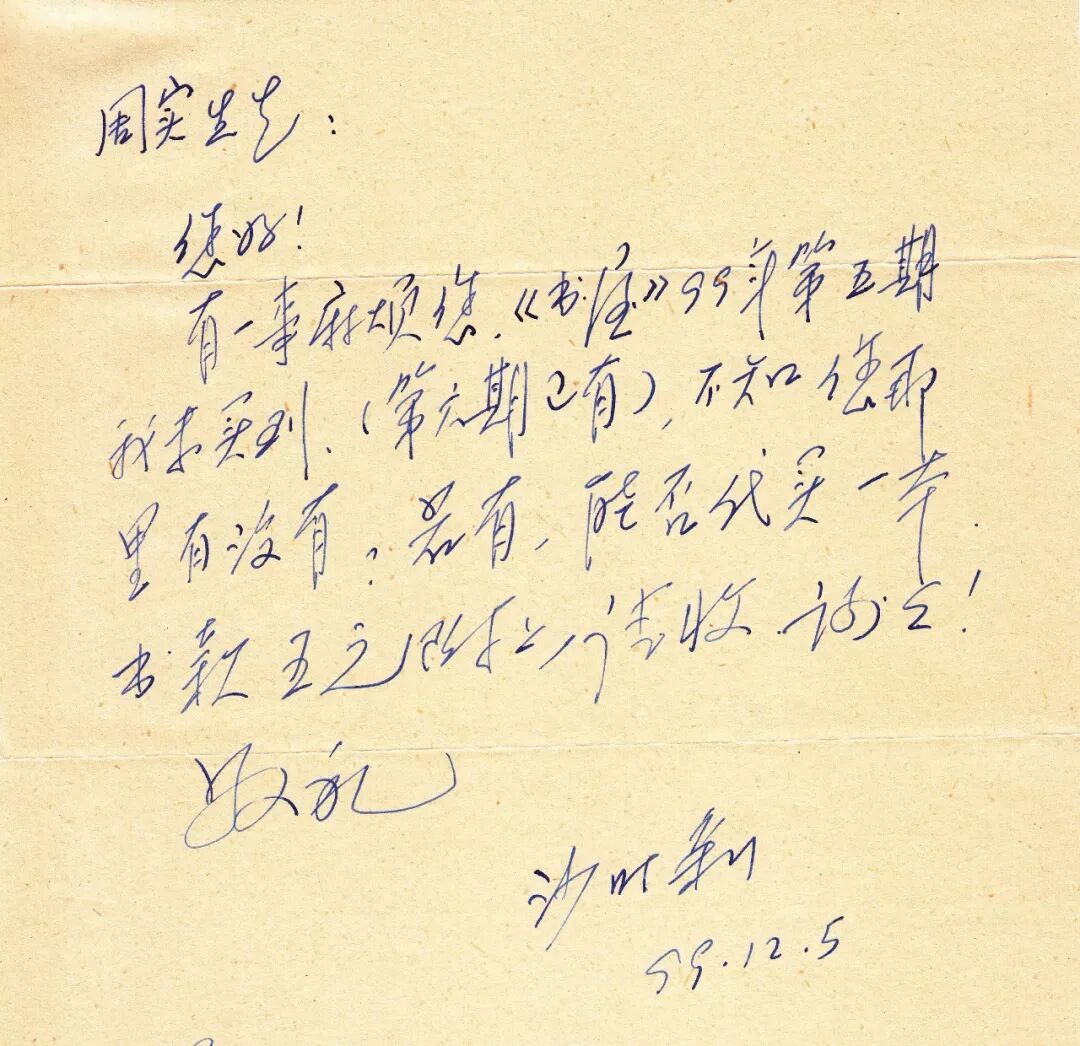 周实先生：
您好！
有一事麻烦您，《书屋》99年第五期
我未买到，（第六期已有），不知您那
里有没有？若有，能否代买一本，
书款五元附上，请收，谢谢！
敬礼
沙叶新
99.12.5